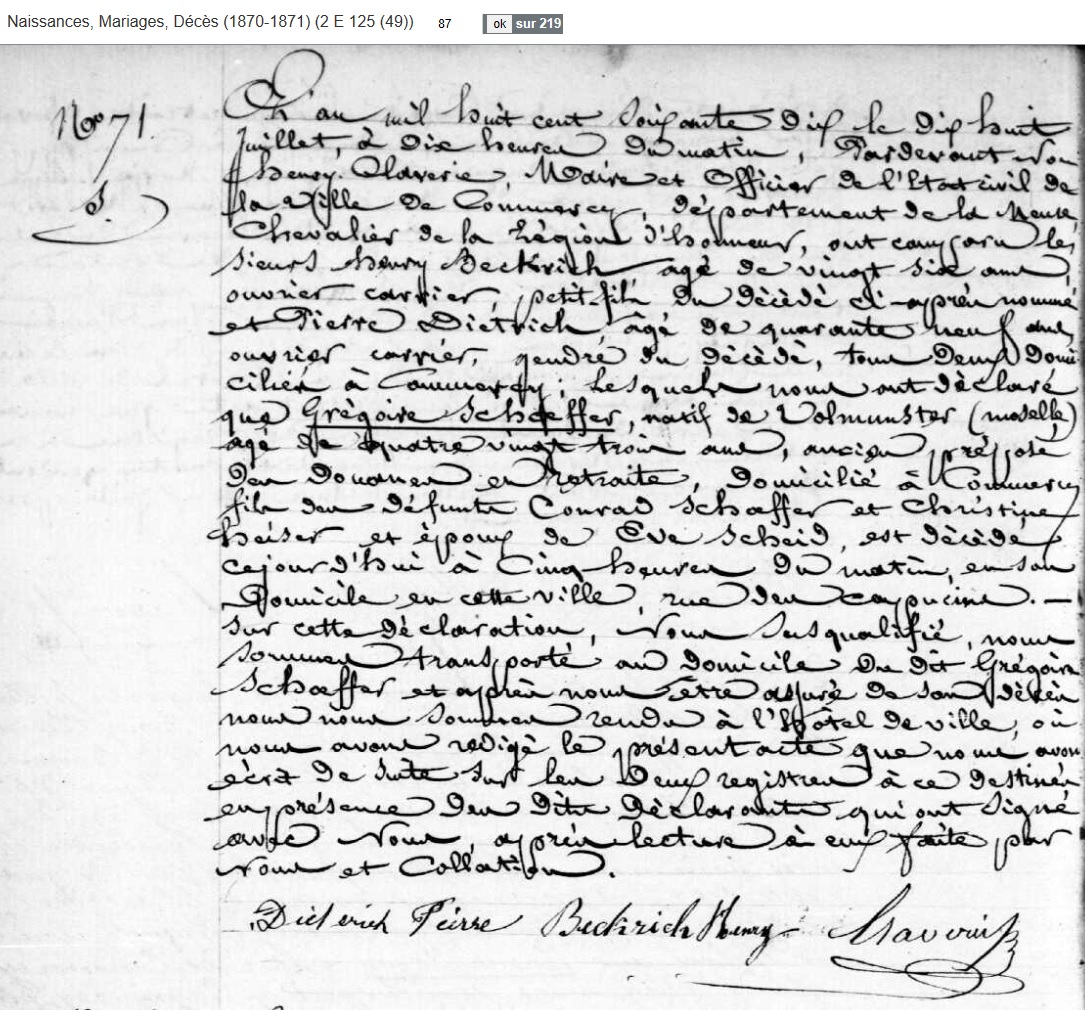 Naissances, Mariages, Décès (1870-1871) (2 E 125 (49)) 87 ok sur 219
No 71.
L'an mil huit cent soixante dix le dix huit
Juillet, à dix heures du matin, Pardevant Nous
henry Claverie, Maire et Officier de l'Etat civil de
la Ville de Commercy, département de la Meuse
Chevalier de la Légion d'honneur, ont comparu les
sieurs henry Beckrich agé de vingt six ans,
ouvrier carrier, petit fils du décèdé ci-après nommé
et Pierre Dietrich âgé de quarante neuf ans
ouvrier carrier, gendre du décèdé, tous deux domi
ciliés à Commercy; Lesquels nous ont déclaré
que Grégoire Schaeffer, natif de Volmunster (moselle)
agé de quatre vingt trois ans ancien préposé
des Douanes en Retraite, domicilié à Commercy
fils des défunts Conrad Schaffer et Christine
heiser et époux de Eve Scheid, est décèdé
cejourd'hui à Cinq heures du matin, en son
Domicile en cette ville, rue des capucins. —
Sur cette déclaration, Nous susqualifié, nous
sommes transporté au domicile du dit Grégoire
Schaffer et après nous être assuré de son décès
nous nous sommes rendu à l'hôtel de ville, où
nous avons redigé le présent acte que nous avons
écrit de suite sur les deux registres à ce destinés
en présence des dits déclarants qui ont signé
avec Nous, après lecture à eux faite par
Nous et Collation.
Dieterich Pierre Beckrich Henry